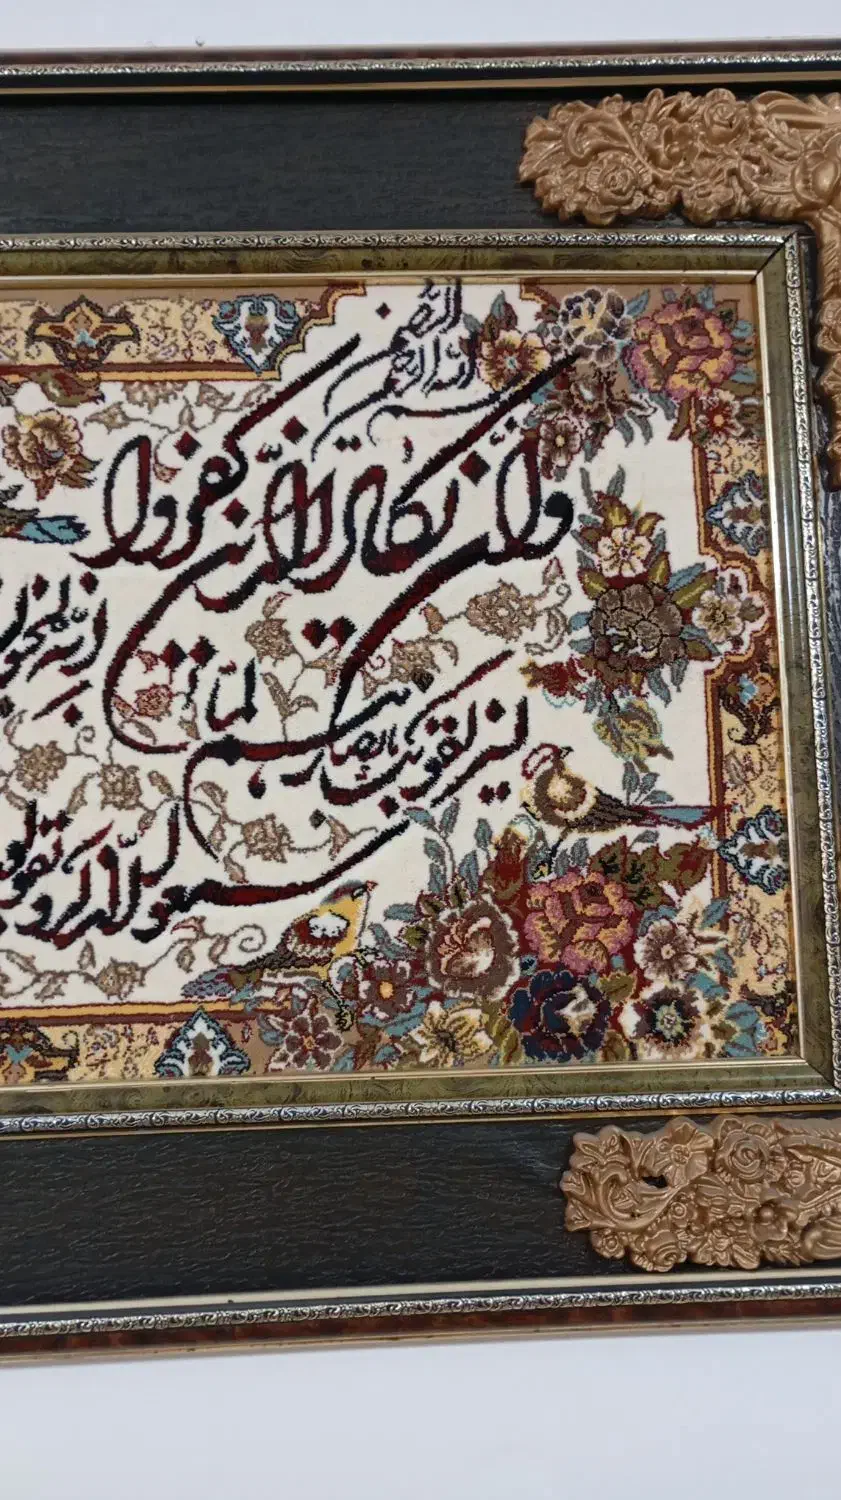 بسم الله الرحمن الرحيم
وَإن يكاد الَّذين كفروا
ليزلقونك بابصارهم لمّا
سمعوا الذكر و يقولو
إنّه لمجنو